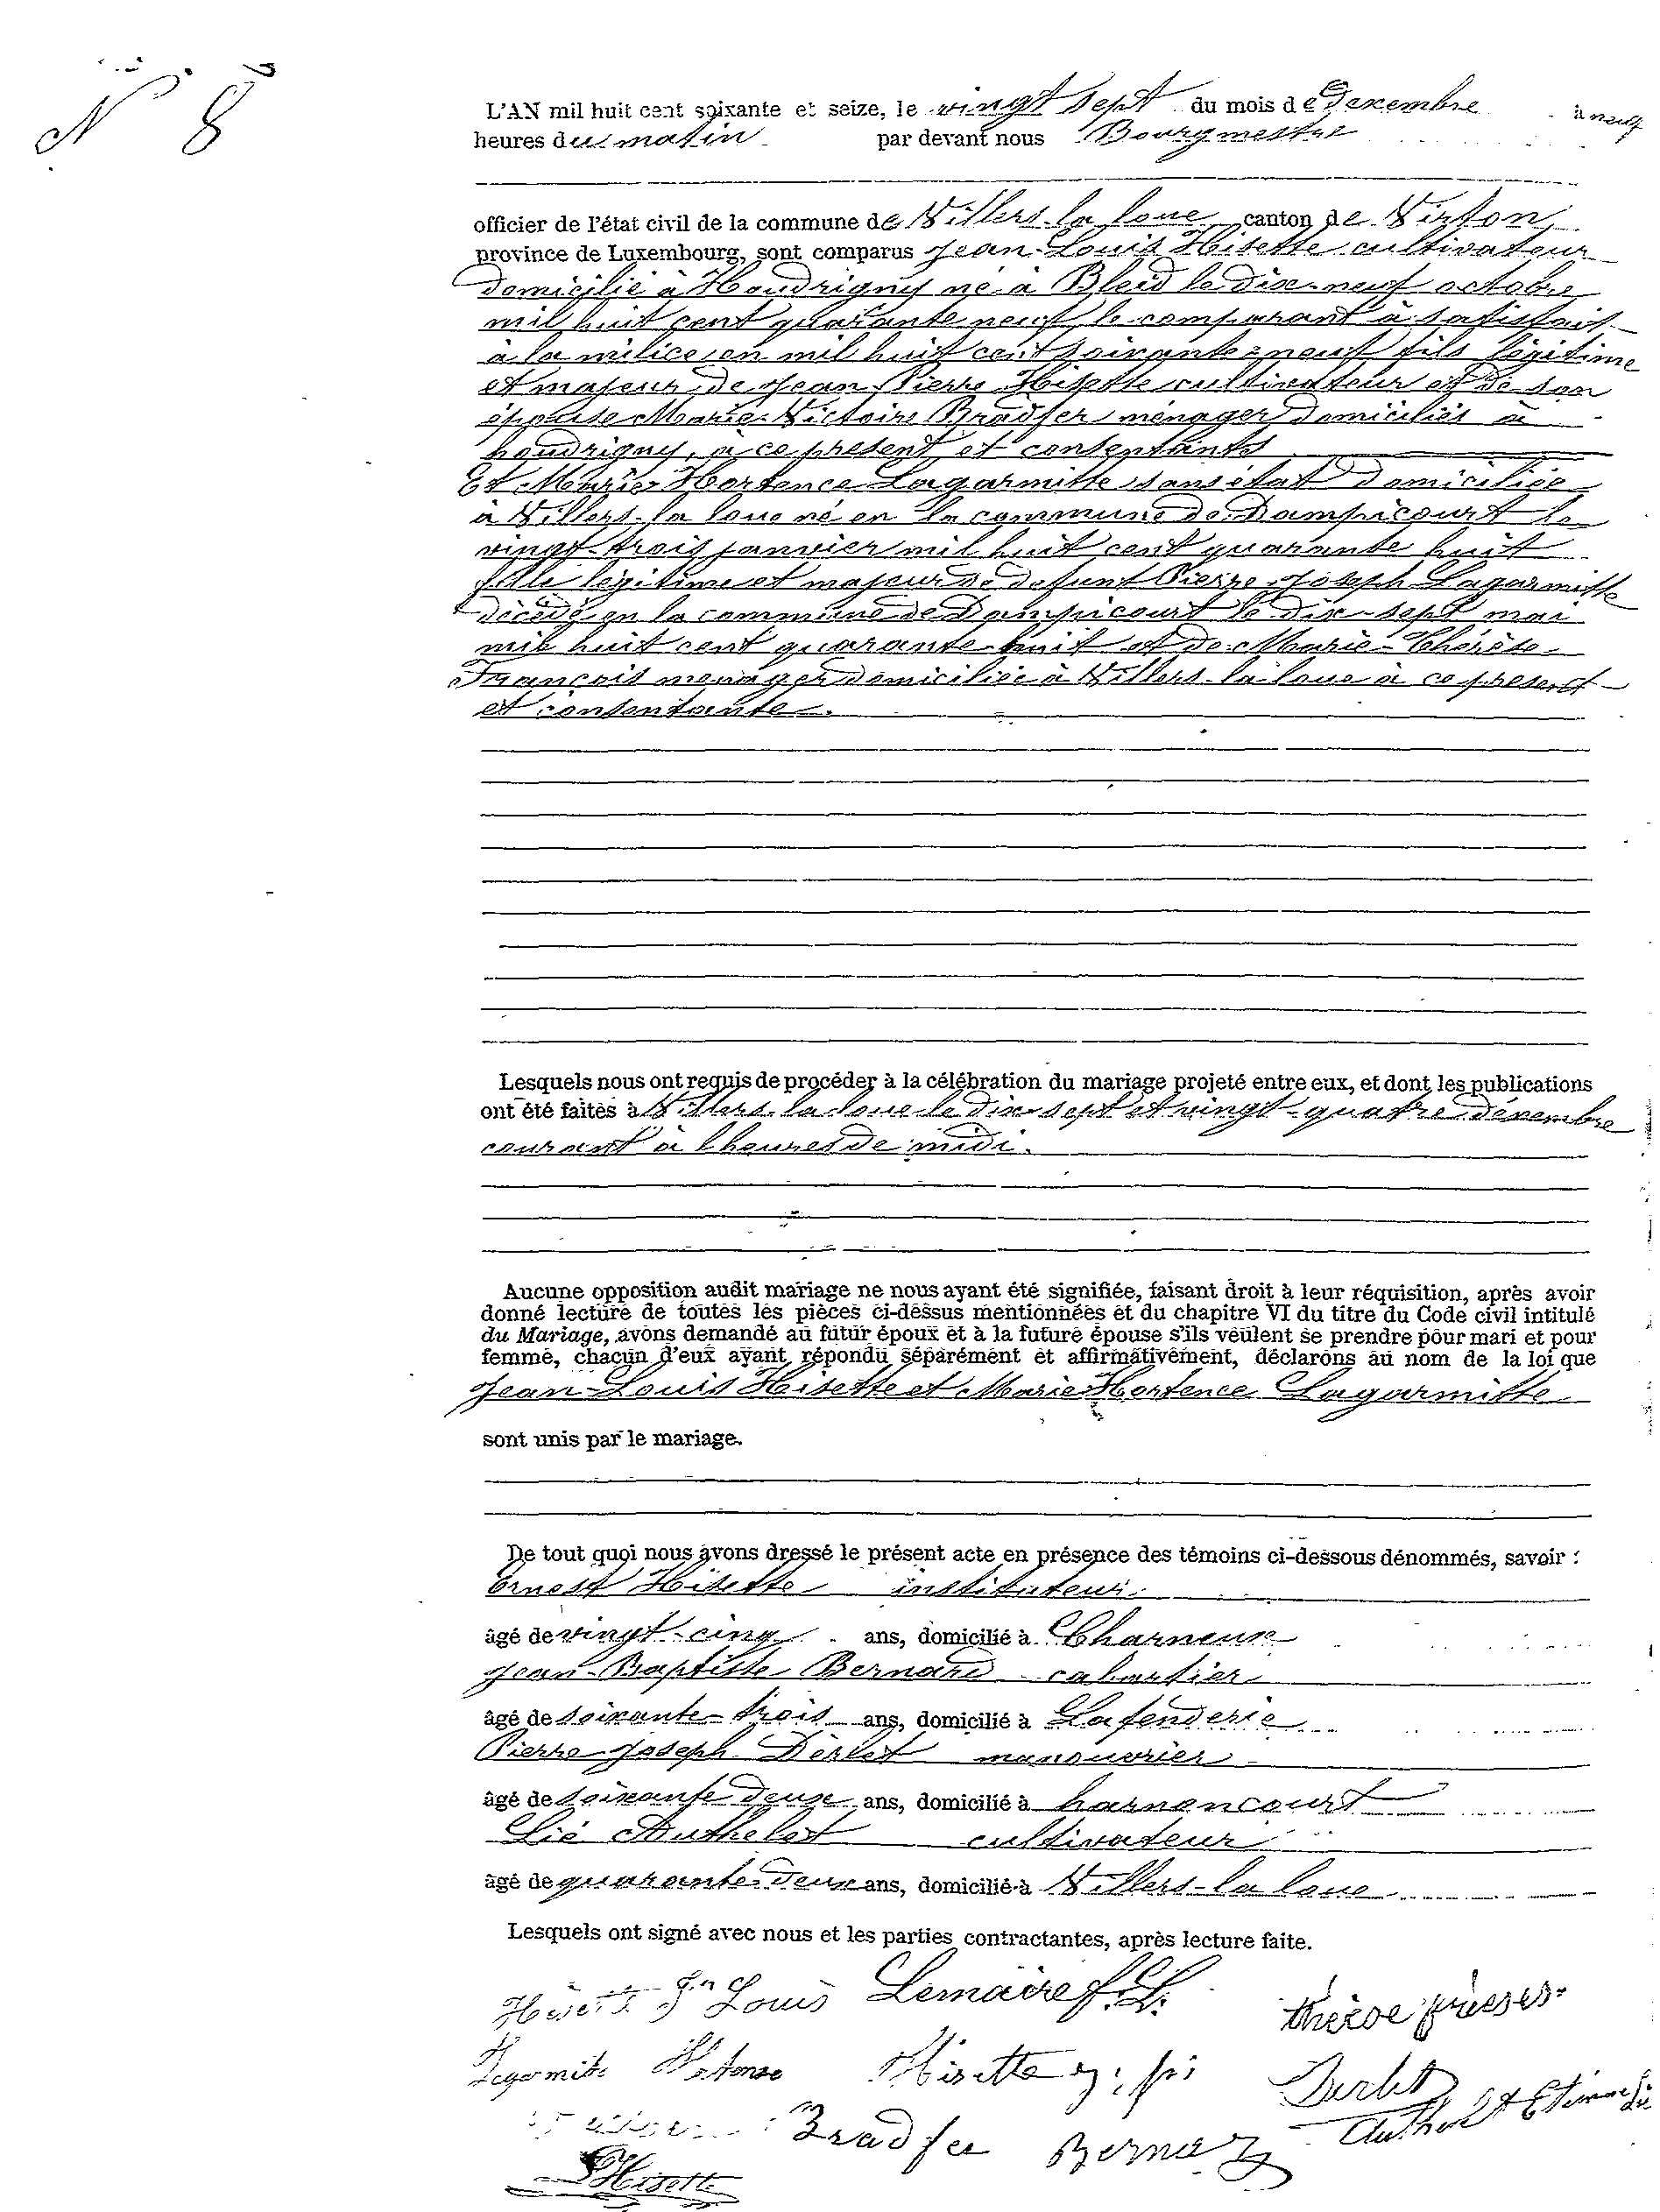 N° 8
L'AN mil huit cent soixante et seize, le vingt sept du mois de Dexembre à neuf
heures du matin par devant nous Bourgmestre
officier de l'état civil de la commune de Villers-la-loue canton de Virton
province de Luxembourg, sont comparus Jean-Louis Hisette cultivateur
domicilié à Houdrigny né à Bleid le dix-neuf octobre
mil huit cent quarante neuf, le comparant à satisfait
à la milice en mil huit cent soixante-neuf fils légitime
et majeur de Jean-Pierre Hisette cultivateur et de son
épouse Marie-Victoire Bradfer ménager domiciliés à
houdrigny, à ce present et consentants
Et Marie-Hortence Lagarmitte sans état domiciliée
à Villers-la loue né en la commune de Dampicourt le
vingt-trois janvier mil huit cent quarante huit
fille légitime et majeur de defunt Pierre-Joseph Lagarmitte
décédé en la commune de Dampicourt le dix-sept mai
mil huit cent quarante-huit et de Marie-Thérèse
François menager domiciliée à Villers-la-loue à ce present
et consentante.
Lesquels nous ont requis de procéder à la célébration du mariage projeté entre eux, et dont les publications
ont été faites à Villers-la loue le dix-sept et vingt-quatre dexembre
courant à l heures de midi.
Aucune opposition audit mariage ne nous ayant été signifiée, faisant droit à leur réquisition, après avoir
donné lecture de toutes les pièces ci-dessus mentionnées et du chapitre VI du titre du Code civil intitulé
du Mariage, avons demandé au futur époux et à la future épouse s'ils veulent se prendre pour mari et pour
femme, chacun d'eux ayant répondu séparément et affirmativement, déclarons au nom de la loi que
Jean-Louis Hisette et Marie-Hortence Lagarmitte
sont unis par le mariage.
De tout quoi nous avons dressé le présent acte en présence des témoins ci-dessous dénommés, savoir :
Ernest Hisette instituteur
âgé de vingt-cinq ans, domicilié à Charneux
Jean-Baptiste Bernard cabartier
âgé de soixante-trois ans, domicilié à Lafenderie
Pierre-Joseph Derlet manouvrier
âgé de soixante deux ans, domicilié à harnoncourt
Lié Authelet cultivateur
âgé de quarante-deux ans, domicilié à Villers-la loue
Lesquels ont signé avec nous et les parties contractantes, après lecture faite.
Hisette Jn Louis Lemaire f. L.
Lagarmite Hisette
Derlet
Bradfer Bernard Etienne
Hisette